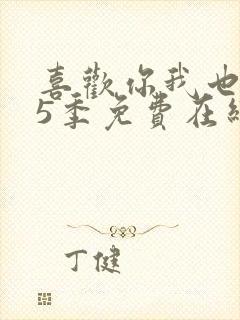 喜歡你我也
5季免費在線
丁健